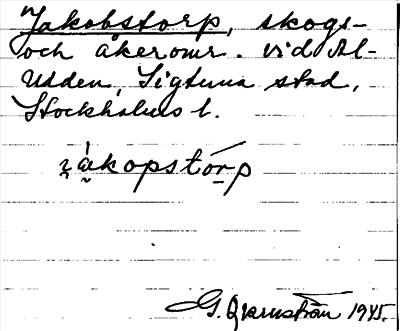 Jakobstorp, skogs-
och åkeromr. vid Al-
udden, Sigtuna stad,
Stockholms l.
jákopstórp
G. Qvarnström 1945.